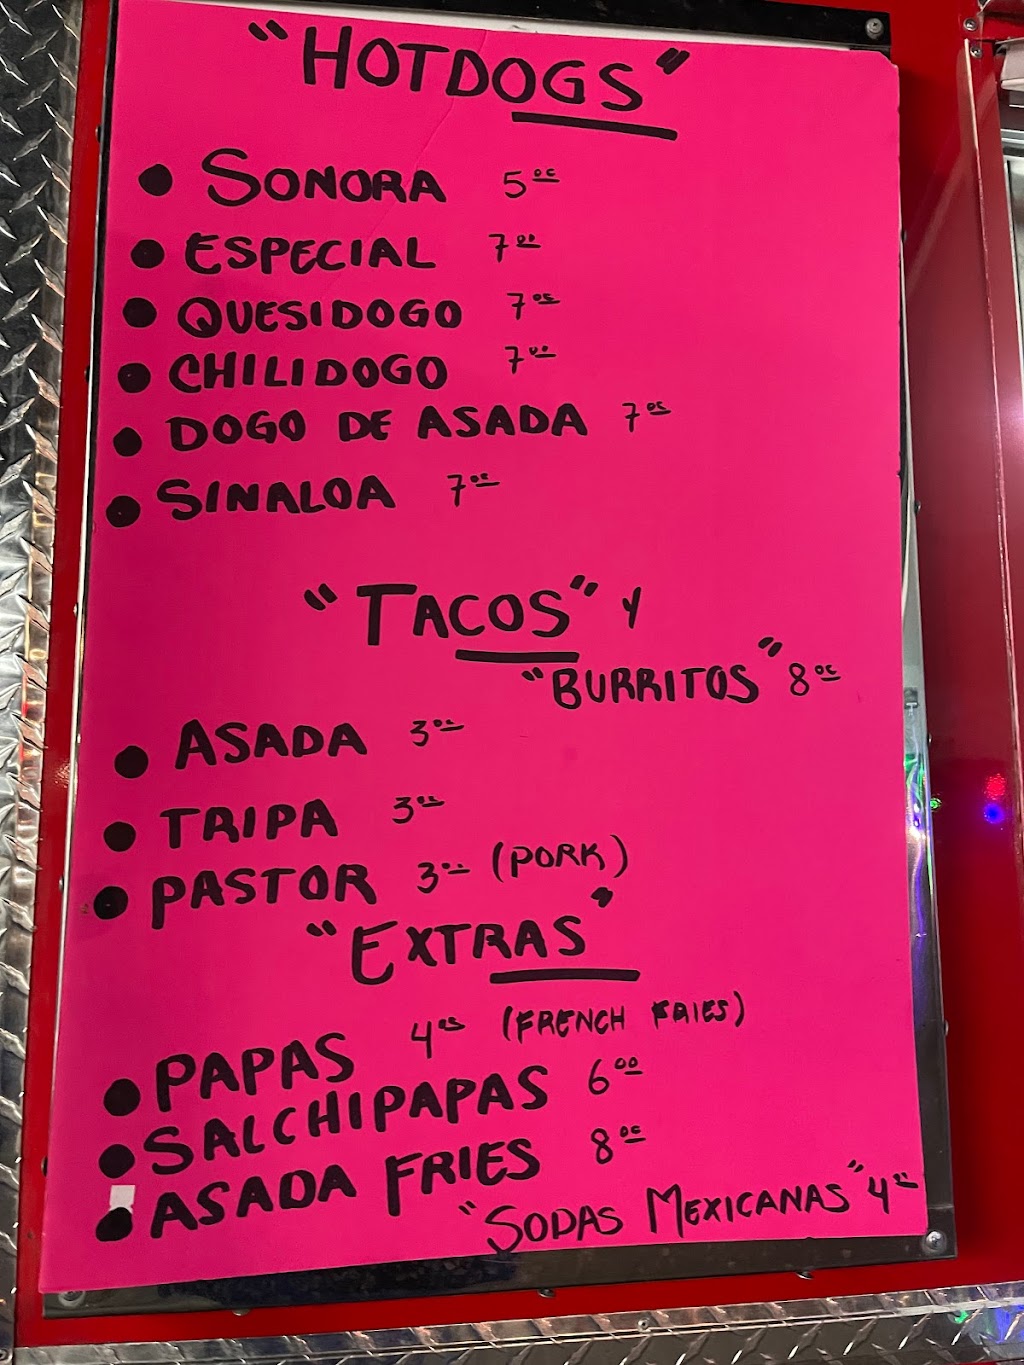 "HOTDOGS"
• SONORA 5⁰⁰
• ESPECIAL 7⁰⁰
• QUESIDOGO 7⁰⁰
• CHILIDOGO 7⁰⁰
• DOGO DE ASADA 7⁰⁰
• SINALOA 7⁰⁰
"TACOS" Y
"BURRITOS" 8⁰⁰
• ASADA 3⁰⁰
• TRIPA 3⁰⁰
• PASTOR 3⁰⁰ (PORK)
"EXTRAS"
• PAPAS 4⁰⁰ (FRENCH FRIES)
• SALCHIPAPAS 6⁰⁰
• ASADA FRIES 8⁰⁰
"SODAS MEXICANAS" 4⁰⁰